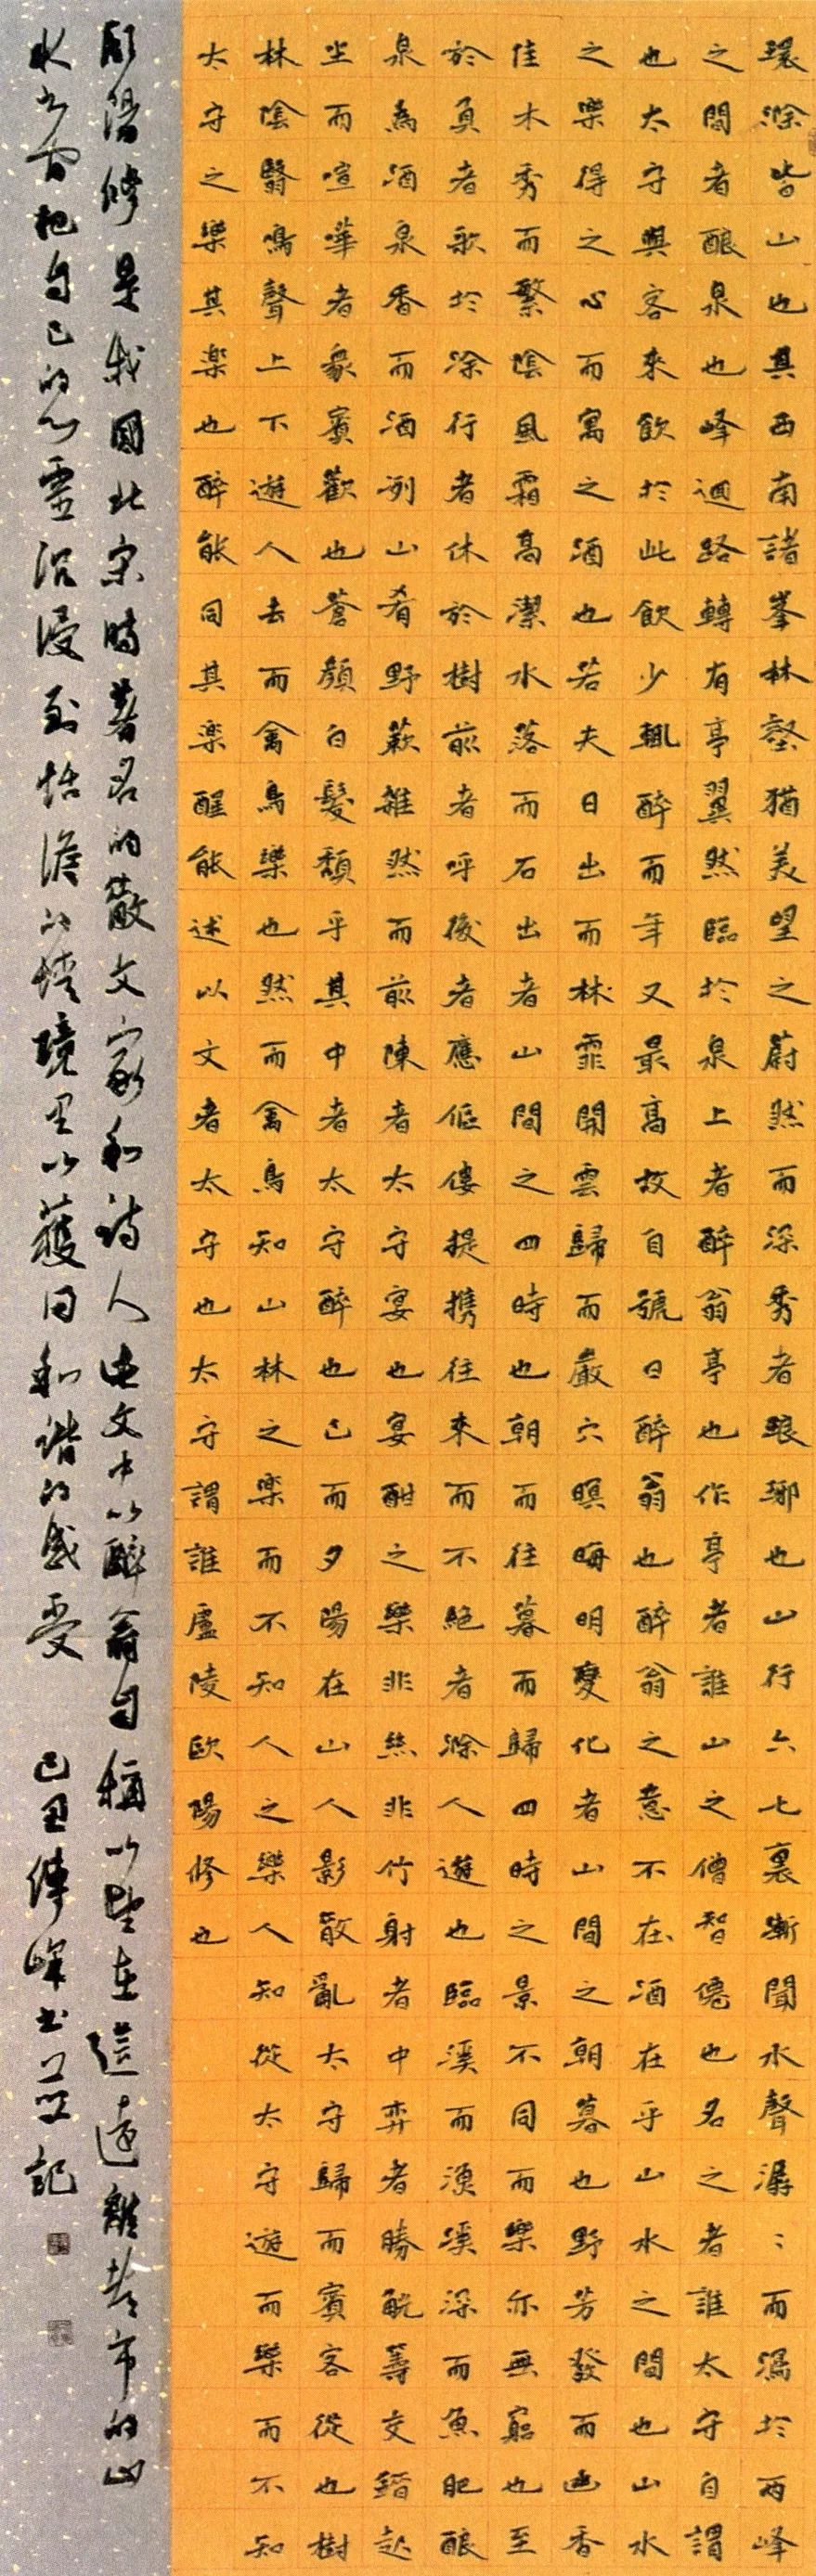 環滁皆山也其西南諸峯林壑猶美望之蔚然而深秀者琅琊也山行六七裏漸聞水聲潺〻而瀉於兩峰
之間者釀泉也峰迴路轉有亭翼然臨於泉上者醉翁亭也作亭者誰山之僧智僊也名之者誰太守自謂
也太守與客來飲於此飲少輒醉而年又最高故自號曰醉翁也醉翁之意不在酒在乎山水之間也山水
之樂得之心而寓之酒也若夫日出而林霏開雲歸而巖穴暝晦明變化者山間之朝暮也野芳發而幽香
佳木秀而繁陰風霜高潔水落而石出者山間之四時也朝而往暮而歸四時之景不同而樂亦無窮也至
於負者歌於涂行者休於樹前者呼後者應傴僂提攜往來而不絕者滁人遊也臨溪而漁溪深而魚肥釀
泉為酒泉香而酒洌山肴野蔌雜然而前陳者太守宴也宴酣之樂非絲非竹射者中弈者勝觥籌交錯起
坐而喧嘩者衆賓歡也蒼顏白髮頹乎其中者太守醉也已而夕陽在山人影散亂太守歸而賓客從也樹
林陰翳鳴聲上下遊人去而禽鳥樂也然而禽鳥知山林之樂而不知人之樂人知從太守遊而樂而不知
太守之樂其樂也醉能同其樂醒能述以文者太守也太守謂誰廬陵歐陽修也
歐陽修是我國北宋時著名的散文家和詩人此文中以醉翁自稱以望在這遠離都市的山
水之間把自己的心靈沉浸到恬澹的情境里以獲得和諧的感受 己丑傅峰書並記